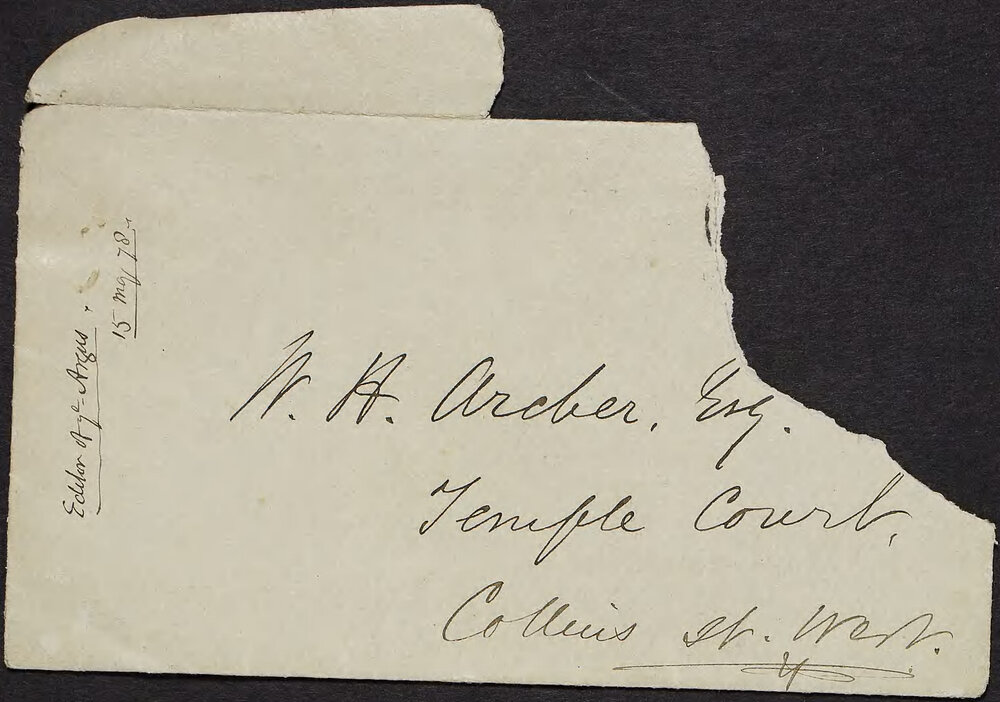 W. H. Archer, Esq.
Temple Court,
Collins St. West.
Editor of ye Argus.
15 May 78.